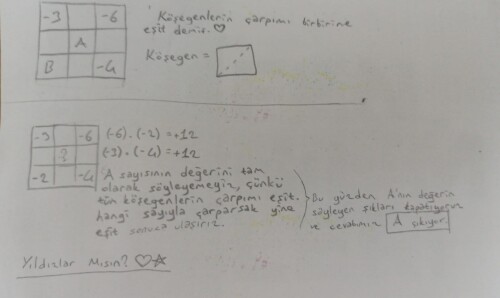 -3 -6
A
B -4
Köşegenlerin çarpımı birbirine
eşit demiş.♡
Köşegen =
-3 -6
?
-2 -4
(-6).(-2)=+12
(-3).(-4)=+12
"A sayısının değerini tam
olarak söyleyemeyiz, çünkü
tüm köşegenlerin çarpımı eşit.
hangi sayıyla çarparsak yine
eşit sonuca ulaşırız.
Bu yüzden A'nın değerin
söyleyen şıkları kapatıyoruz
ve cevabımız A çıkıyor
Yıldızlar Mısın? ♡☆